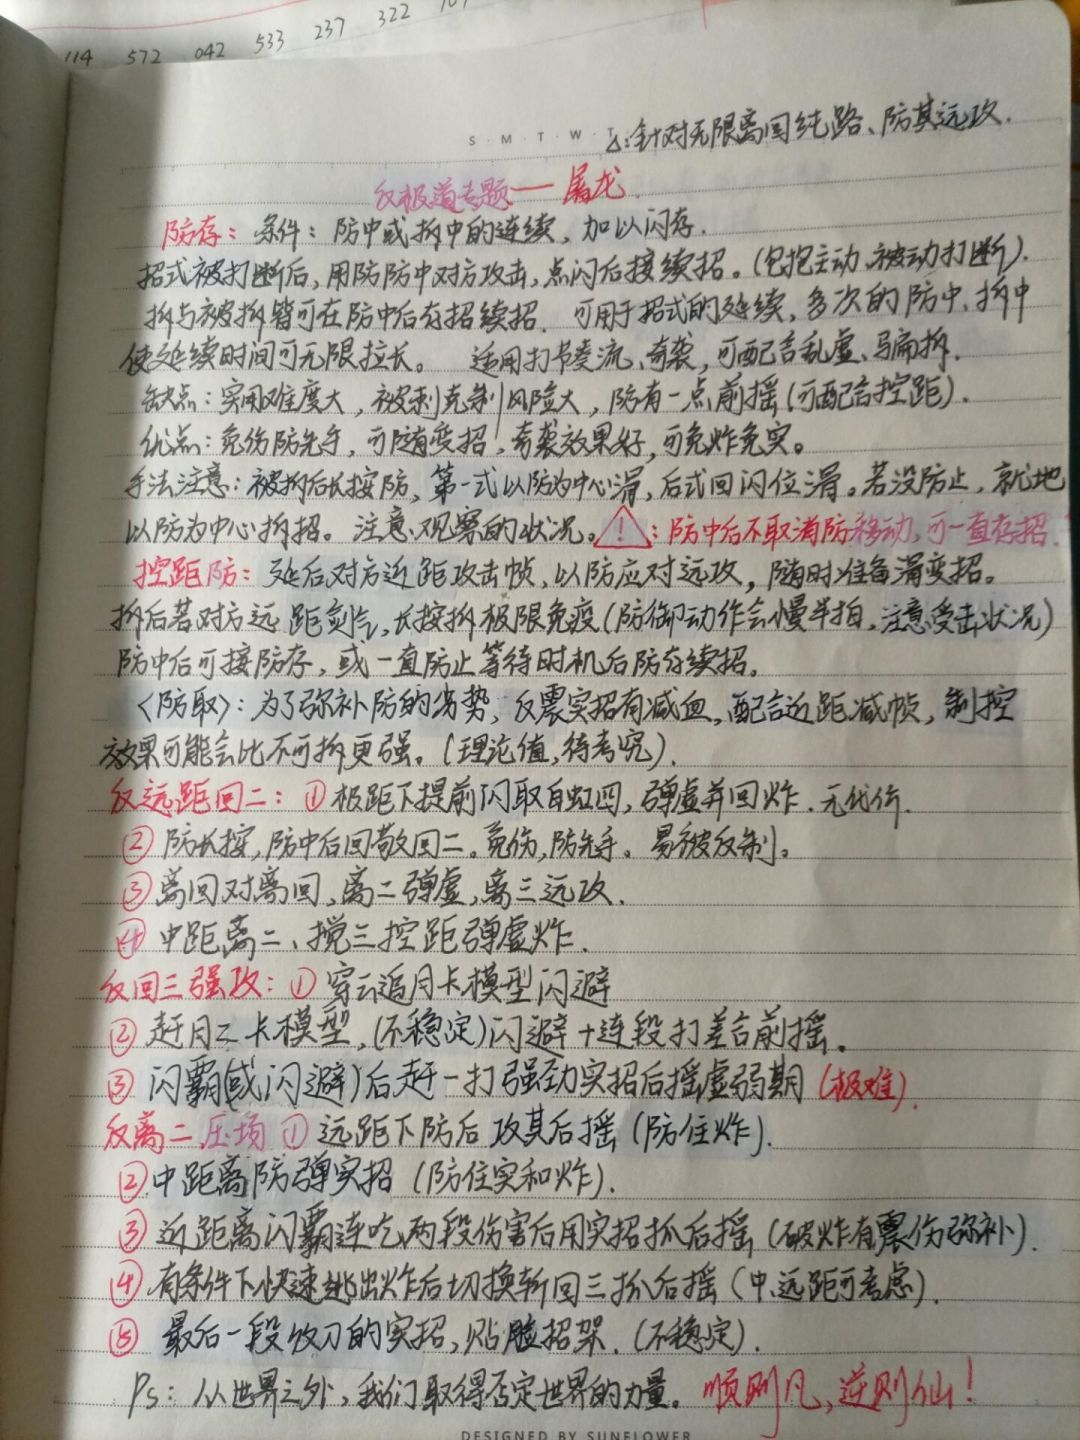 114 572 042 533 237 322
S·M·T·W·T
△:针对无限离回纯路、防其远攻.
反极道专题——屠龙.
防存: 条件: 防中或拆中的连续, 加以闪存.
招式被打断后, 用防防中对方攻击, 点闪后接续招。(包抱主动、被动打断).
拆与被拆皆可在防中后存招续招. 可用于招式的延续, 多次的防中、拆中
使延续时间可无限拉长。 适用打节奏流、奇袭, 可配合乱虚、骗拆.
缺点: 实用难度大, 被刺克制风险大, 防有一点前摇(可配合控距).
优点: 免伤防先手, 可随变招, 奇袭效果好, 可免炸免实。
手法注意: 被拆后长按防, 第一式以防为中心滑, 后式回闪位滑。若没防止, 就地
以防为中心拆招。注意观察的状况。⚠: 防中后不取消防移动, 可一直存招.
控距防: 延后对方近距攻击帧, 以防应对远攻, 随时准备滑变招。
拆后若对方远距剑气, 长按拆极限免疫(防御动作会慢半拍, 注意受击状况)
防中后可接防存, 或一直防止等待时机后防存续招。
〈防取〉: 为了弥补防的劣势, 反震实招有减血, 配合近距减帧, 制控
效果可能会比不可拆更强。(理论值, 待考究).
反远距回二: ① 极距下提前闪取白虹四, 弹虚并回炸. 无代价.
② 防长按, 防中后回敬回二。免伤, 防先手。易被反制。
③ 离回对离回, 离二弹虚, 离三远攻.
④ 中距离二、搅三控距弹虚炸.
反回三强攻: ① 穿云追月卡模型闪避
② 赶月二卡模型, (不稳定)闪避+连段打差合前摇。
③ 闪霸(或闪避)后赶一打强劲实招后摇虚弱期 (极难).
反离二压场 ① 远距下防后攻其后摇 (防住炸).
② 中距离防弹实招 (防住实和炸).
③ 近距离闪霸连吃两段伤害后用实招抓后摇 (破炸有震伤弥补).
④ 有条件下快速逃出炸后切换斩回三抓后摇 (中、远距可考虑).
⑤ 最后一段收刀的实招, 贴脸招架. (不稳定).
Ps: 从世界之外, 我们取得否定世界的力量。 顺则凡, 逆则仙!
DESIGNED BY SUNFLOWER